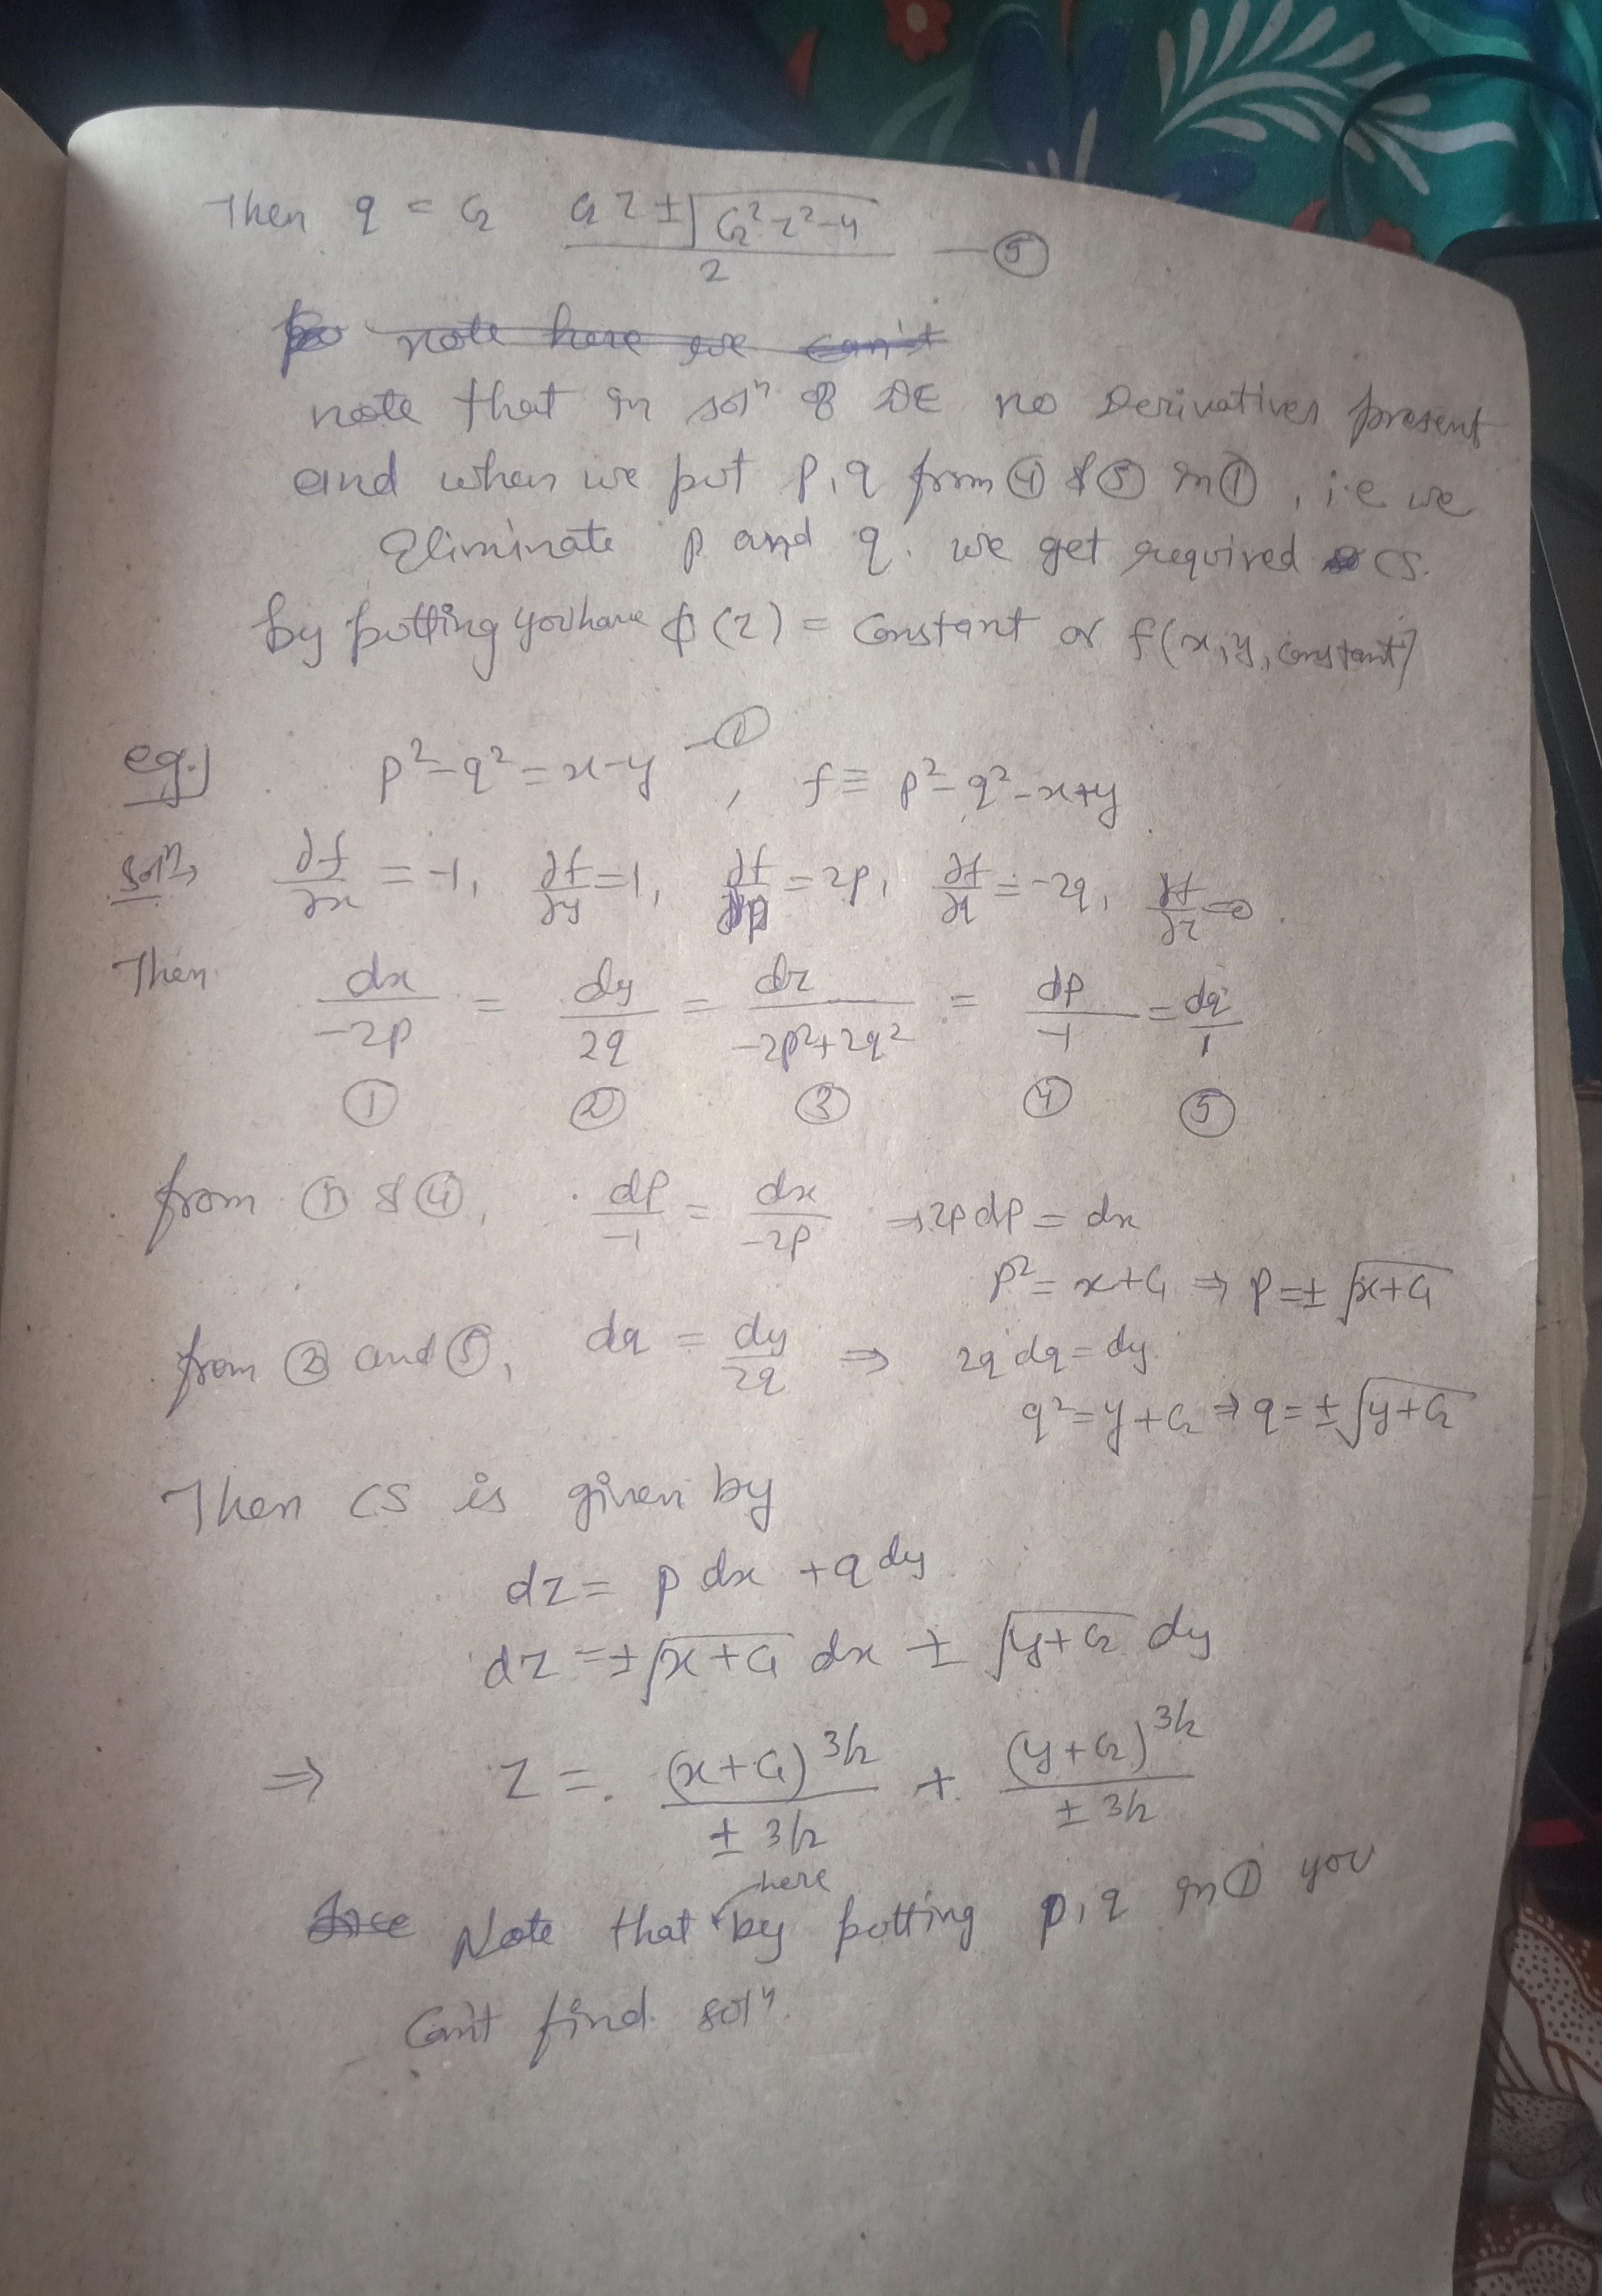 Then q = C₂ (C₂z ± √(C₂²z²-4))/2 —⑤
note here we can't
note that in solⁿ of DE no Derivatives present
and when we put p,q from ④ & ⑤ in ①, i.e we
Eliminate p and q. we get required CS.
by putting you have ϕ(z) = Constant or f(x,y,constant)
eg.) p²-q² = x-y —①, f ≡ p²-q²-x+y
solⁿ, ∂f/∂x = -1, ∂f/∂y = 1, ∂f/∂p = 2p, ∂f/∂q = -2q, ∂f/∂z = 0.
Then dx/-2p = dy/2q = dz/-2p²+2q² = dp/-1 = dq/1
① ② ③ ④ ⑤
from ① & ④, dp/-1 = dx/-2p ⇒ 2p dp = dx
p² = x+C₁ ⇒ p = ± √(x+C₁)
from ② and ⑤, dq = dy/2q ⇒ 2q dq = dy
q² = y+C₂ ⇒ q = ± √(y+C₂)
Then CS is given by
dz = p dx + q dy
dz = ± √(x+C₁) dx ± √(y+C₂) dy
⇒ z = (x+C₁)^3/2 / ± 3/2 + (y+C₂)^3/2 / ± 3/2
Note that here by putting p,q in ① you
Can't find solⁿ.